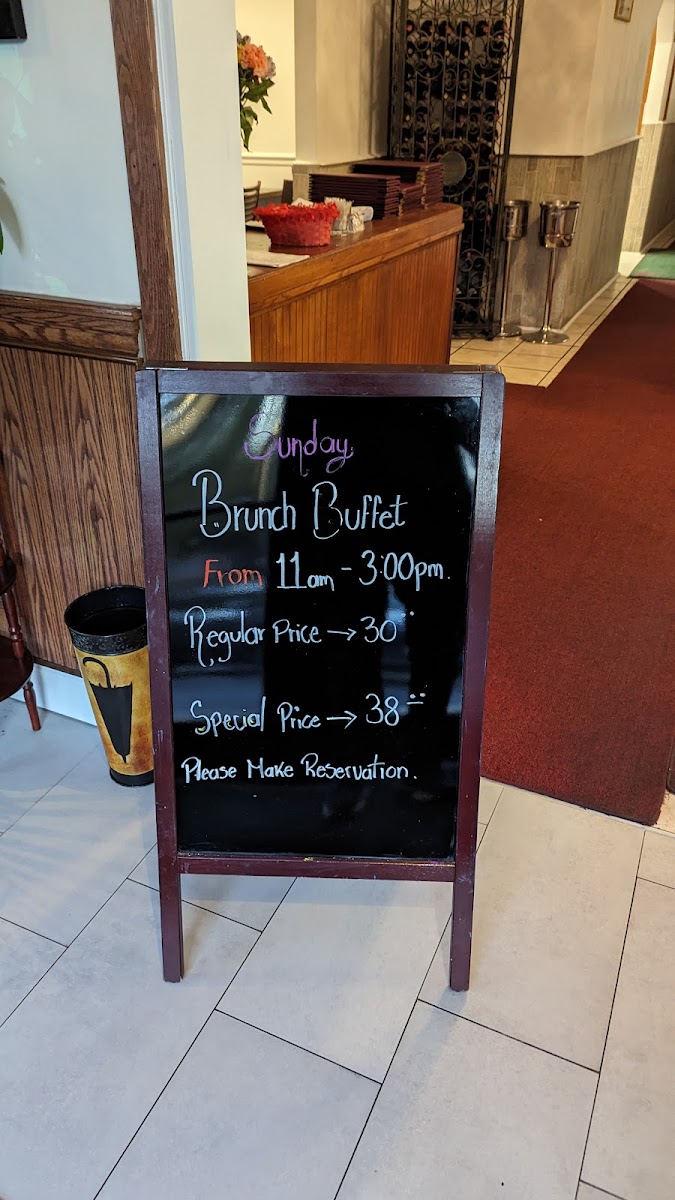 Sunday
Brunch Buffet
From 11am - 3:00pm.
Regular Price → 30
Special Price → 38
Please Make Reservation.